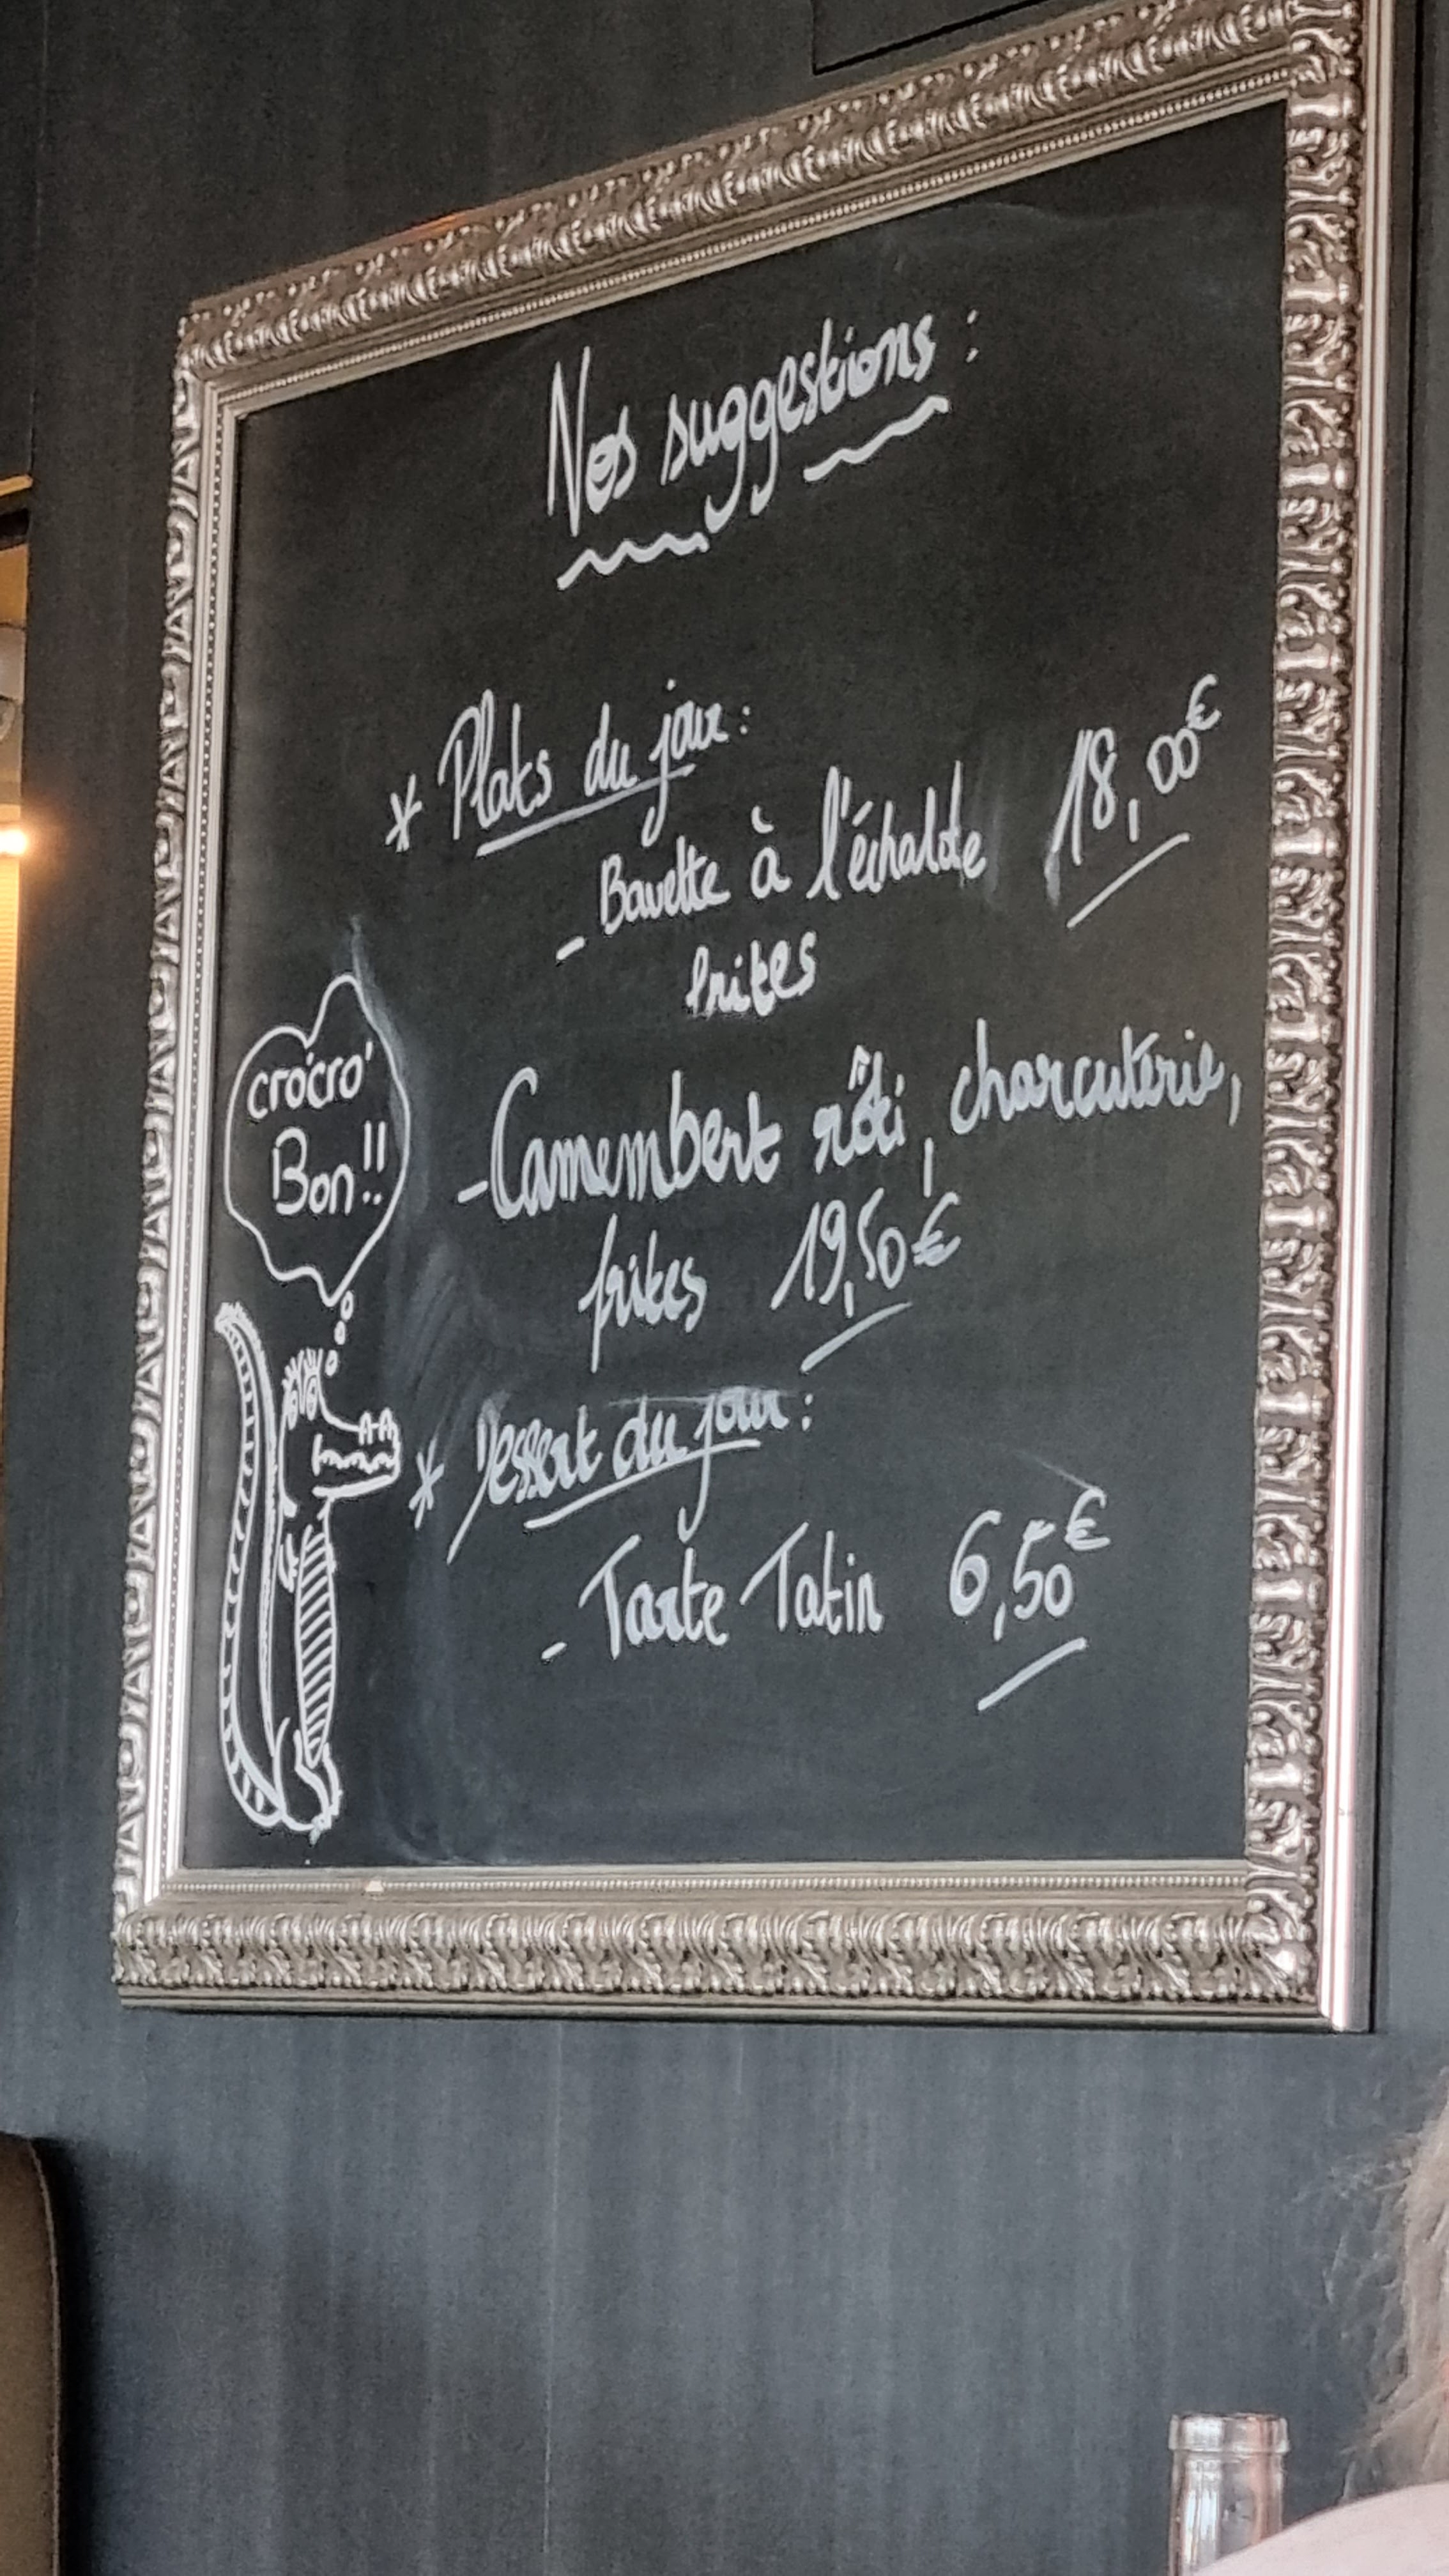 Nos suggestions :
* Plats du jour :
- Bavette à l'échalote 18,00€
frites
crocro'
Bon!!
- Camembert rôti, charcuterie,
frites 19,50€
* Dessert du jour :
- Tarte Tatin 6,50€